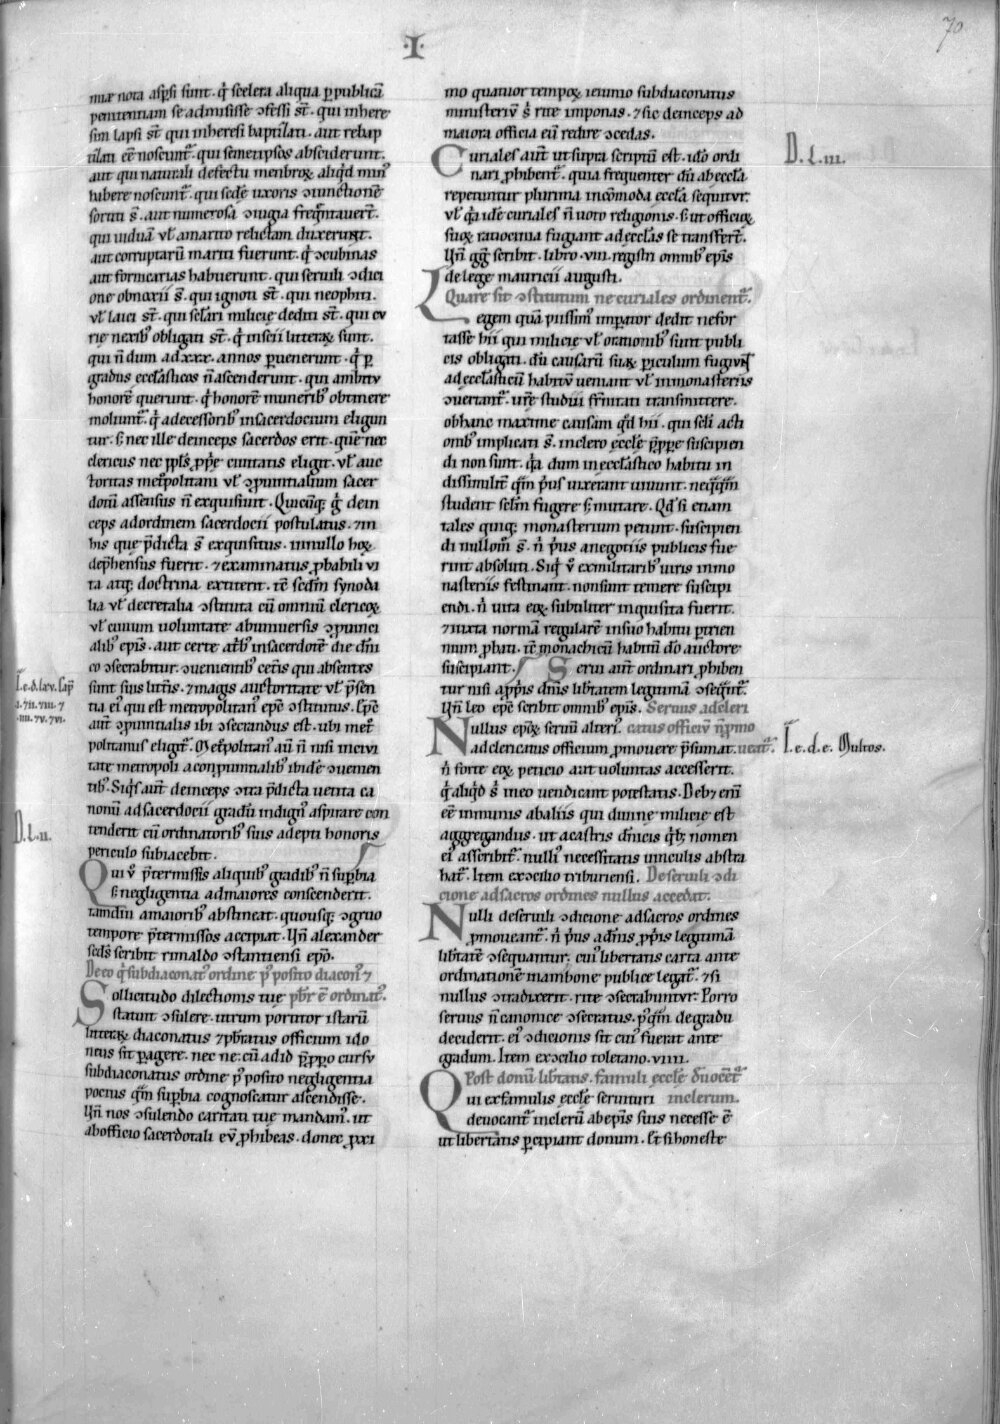 70
·I·
miæ nota aspsi sunt. q̇ scelera aliqua p̱ publicā
penitentiam se admisisse ꝯfessi st̄. qui in here
sim lapsi st̄. qui in heresi baptizati. aut rebap
tizati eē noscunt᷑. qui semetipsos absciderunt.
aut qui naturali defectu menbroꝝ aliqd minꝰ
habere noscunt᷑. qui scđe uxoris ꝯiunctionē
sortiti s̄. aut numerosa ꝯiugia freq̄ntauer̄t.
qui uiduā ul̄ a marito relictam duxerunt.
aut corruptarū mariti fuerunt. q̇ ꝯcubinas
aut fornicarias habuerunt. qui seruili ꝯdici
one obnoxii s̄. qui ignoti st̄. qui neophiti.
ul̄ laici st̄. qui sclari milicię dediti st̄. qui cu
rie nexibꝰ obligati st̄. q̇ inscii litteraꝝ sunt.
qui n̄ dum ad .xxx. annos peruenerunt. q̇ ꝑ
gradus eccłasticos n̄ ascenderunt. qui ambitu
honorē querunt. q̇ honorē muneribꝰ obtinere
moliunt᷑. q̇ a decessoribꝰ in sacerdocium eligun
tur. s; nec ille deinceps sacerdos erit. quē nec
clericus nec ppłs ꝓprię ciuitatis eligit. ul̄ auc
toritas metꝓolitani ul̄ ꝯprouintialium sacer
dotū assensus n̄ exquisiuit. Quicūq; g̊ dein
ceps ad ordinem sacerdocii postulatus. ⁊ in
his que p̄dicta s̄ exquisitus. in nullo hoꝝ
dep̄hensus fuerit. ⁊ examinatus ꝓbabili ui
ta atq; doctrina extiterit. tc̄ scd̄m synoda
lia ul̄ decretalia ꝯstituta cū omniū clericoꝝ
ul̄ ciuium uoluntate ab uniuersis ꝯprouinci
alibꝰ ep̄is. aut certe a tribꝰ in sacerdotē die dn̄i
co ꝯsecrabitur. ꝯuenientibꝰ cet̄is qui absentes
sunt suis litt̄is. ⁊ magis auctoritate ul̄ p̄sen
tia eiꝰ qui est metropolitanꝰ ep̄c ꝯstitutus. Ep̄c
aut̄ ꝯprouintialis ibi ꝯsecrandus est. ubi met̄
politanus eligit᷑. Met̄politanꝰ aū n̄ nisi in ciui
tate metropoli a conprouintialibꝰ ibidē ꝯuenien
tibꝰ. Siq̇s aut̄ deinceps ꝯtra p̄dicta uetita ca
nonū ad sacerdocii gradū indignꝰ aspirare con
tenderit cū ordinatoribꝰ suis adepti honoris
periculo subiacebit.
Qui u̇ p̄termissis aliquibꝰ gradibꝰ n̄ suꝑbia
s; negligentia ad maiores conscenderit.
tamdiu a maioribꝰ abstineat. quousq; ꝯgruo
tempore p̄termissos accipiat. Uñ alexander
scđs scribit rimaldo ꝯstantiensi ep̄o.
De eo q̇ subdiaconatꝰ ordine pꝰ posito diaconꝰ ⁊
Sollicitudo dilectionis tue pb̄r ē ordinatꝰ.
statuit ꝯsulere. utrum portitor istarū
litteraꝝ diaconatus ⁊ pb̄ratus officium ido
neus sit ꝑagere. nec ne. cū ad id p̄ppo cursu
subdiaconatus ordine pꝰ posito negligentia
pocius q̄m suꝑbia cognoscatur ascendisse.
Uñ nos ꝯsulendo caritati tue mandamꝰ. ut
ab officio sacerdotali eū ꝓhibeas. donec ꝓxi
mo quatuor tempoꝝ ieiunio subdiaconatus
ministeriū s; rite imponas. ⁊ sic deinceps ad
maiora officia eū redire ꝯcedas.
Curiales aut̄ ut supra scriptū est. idō ordi
nari ꝓhibent᷑. quia frequenter dū ab eccła
repetuntur plurima incōmoda eccła sequitur.
ul̄ q̇a idē curiales n̄ uoto religionis. s; ut officioꝝ
suoꝝ ratiocinia fugiant ad eccłas se transfer̄t.
Uñ gg̊ scribit. libro .viii. registri omnibꝰ ep̄is
de lege mauricii augusti.
Quare sit ꝯstitutum ne curiales ordinent᷑.
Legem quā piissimꝰ imꝑator dedit ne for
tasse hii qui milicie ul̄ rationibꝰ sunt publi
cis obligati. dū causarū suaꝝ ꝑiculum fugiunt
ad eccłasticū habitū ueniant ul̄ in monasteriis
ꝯuertant᷑. ur̄e studui fr̄nitati transmittere.
ob hanc maxime causam qd̄ hii. qui scłi acti
onibꝰ implicati s̄. in clero ecclę ꝓpere suscipien
di non sunt. q̇a dum in eccłastico habitu in
dissimilit̄ q̄m pꝰius uixerant uiuunt. neq̄q̄m
student sclm fugere s; mutare. Qd̄ si etiam
tales quiq; monasterium petunt. suscipien
di nullom̄ s̄. n̊ pꝰius a negotiis publicis fue
rint absoluti. Siq̇ u̇ ex militaribꝰ uiris in mo
nasteriis festinant. non sunt temere suscipi
endi. n̊ uita eoꝝ subtiliter inquisita fuerit.
⁊ iuxta normā regularē in suo habitu ꝑ trien
nium ꝓbati. tc̄ monachicū habitū dō auctore
suscipiant. Serui aut̄ ordinari ꝓhiben
tur nisi a ꝓpriis dn̄is libtatem legitimā ꝯseqt᷑.
Uñ leo ep̄c scribit omnibꝰ ep̄is. Seruus ad cleri
Nullus ep̄oꝝ seruū alteriꝰ catus officiū n̄ ꝓmo
ad clericatus officium ꝓmouere p̄sumat. ueat᷑.
n̊ forte eoꝝ peticio aut uoluntas accesserit.
q̇ aliqd s; in eo uendicant potestatis. Deb; enī
eē inmunis ab aliis qui diuine milicie est
aggregandus. ut a castris dn̄icis qb; nomen
eiꝰ asscribit᷑. nulliꝰ necessitatis uinculis abstra
hat᷑. Item ex ꝯcilio triburiensi. De seruili ꝯdi
cione ad sacros ordines nullus accedat.
Nulli de seruili ꝯdicione ad sacros ordines
ꝓmoueant᷑. n̊ pꝰius a dn̄is ꝓpriis legitimā
libtatē ꝯsequantur. cuiꝰ libertatis carta ante
ordinationē in ambone publice legat᷑. ⁊ si
nullus ꝯtradixerit. rite ꝯsecrabuntur. Porro
seruus n̄ canonice ꝯsecratus. pꝰq̄m de gradu
deciderit. eiꝰ ꝯdicionis sit cuiꝰ fuerat ante
gradum. Item ex ꝯcilio toletano .viiii.
Post donū libtatis. famuli ecclę ad uocent᷑
Qui ex familiis ecclę seruituri in clerum.
deuocant᷑ in clerū ab ep̄is suis necesse ē
ut libertatis ꝑcipiant donum. Et si honeste
D. L. iii.
D. L. ii.
I. e. d. e. Multos.